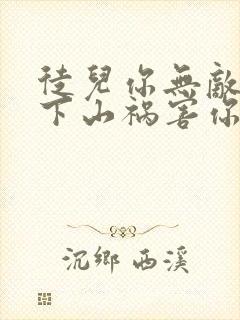 徒兒你無敵
下山禍害你
沉鄉 西溪